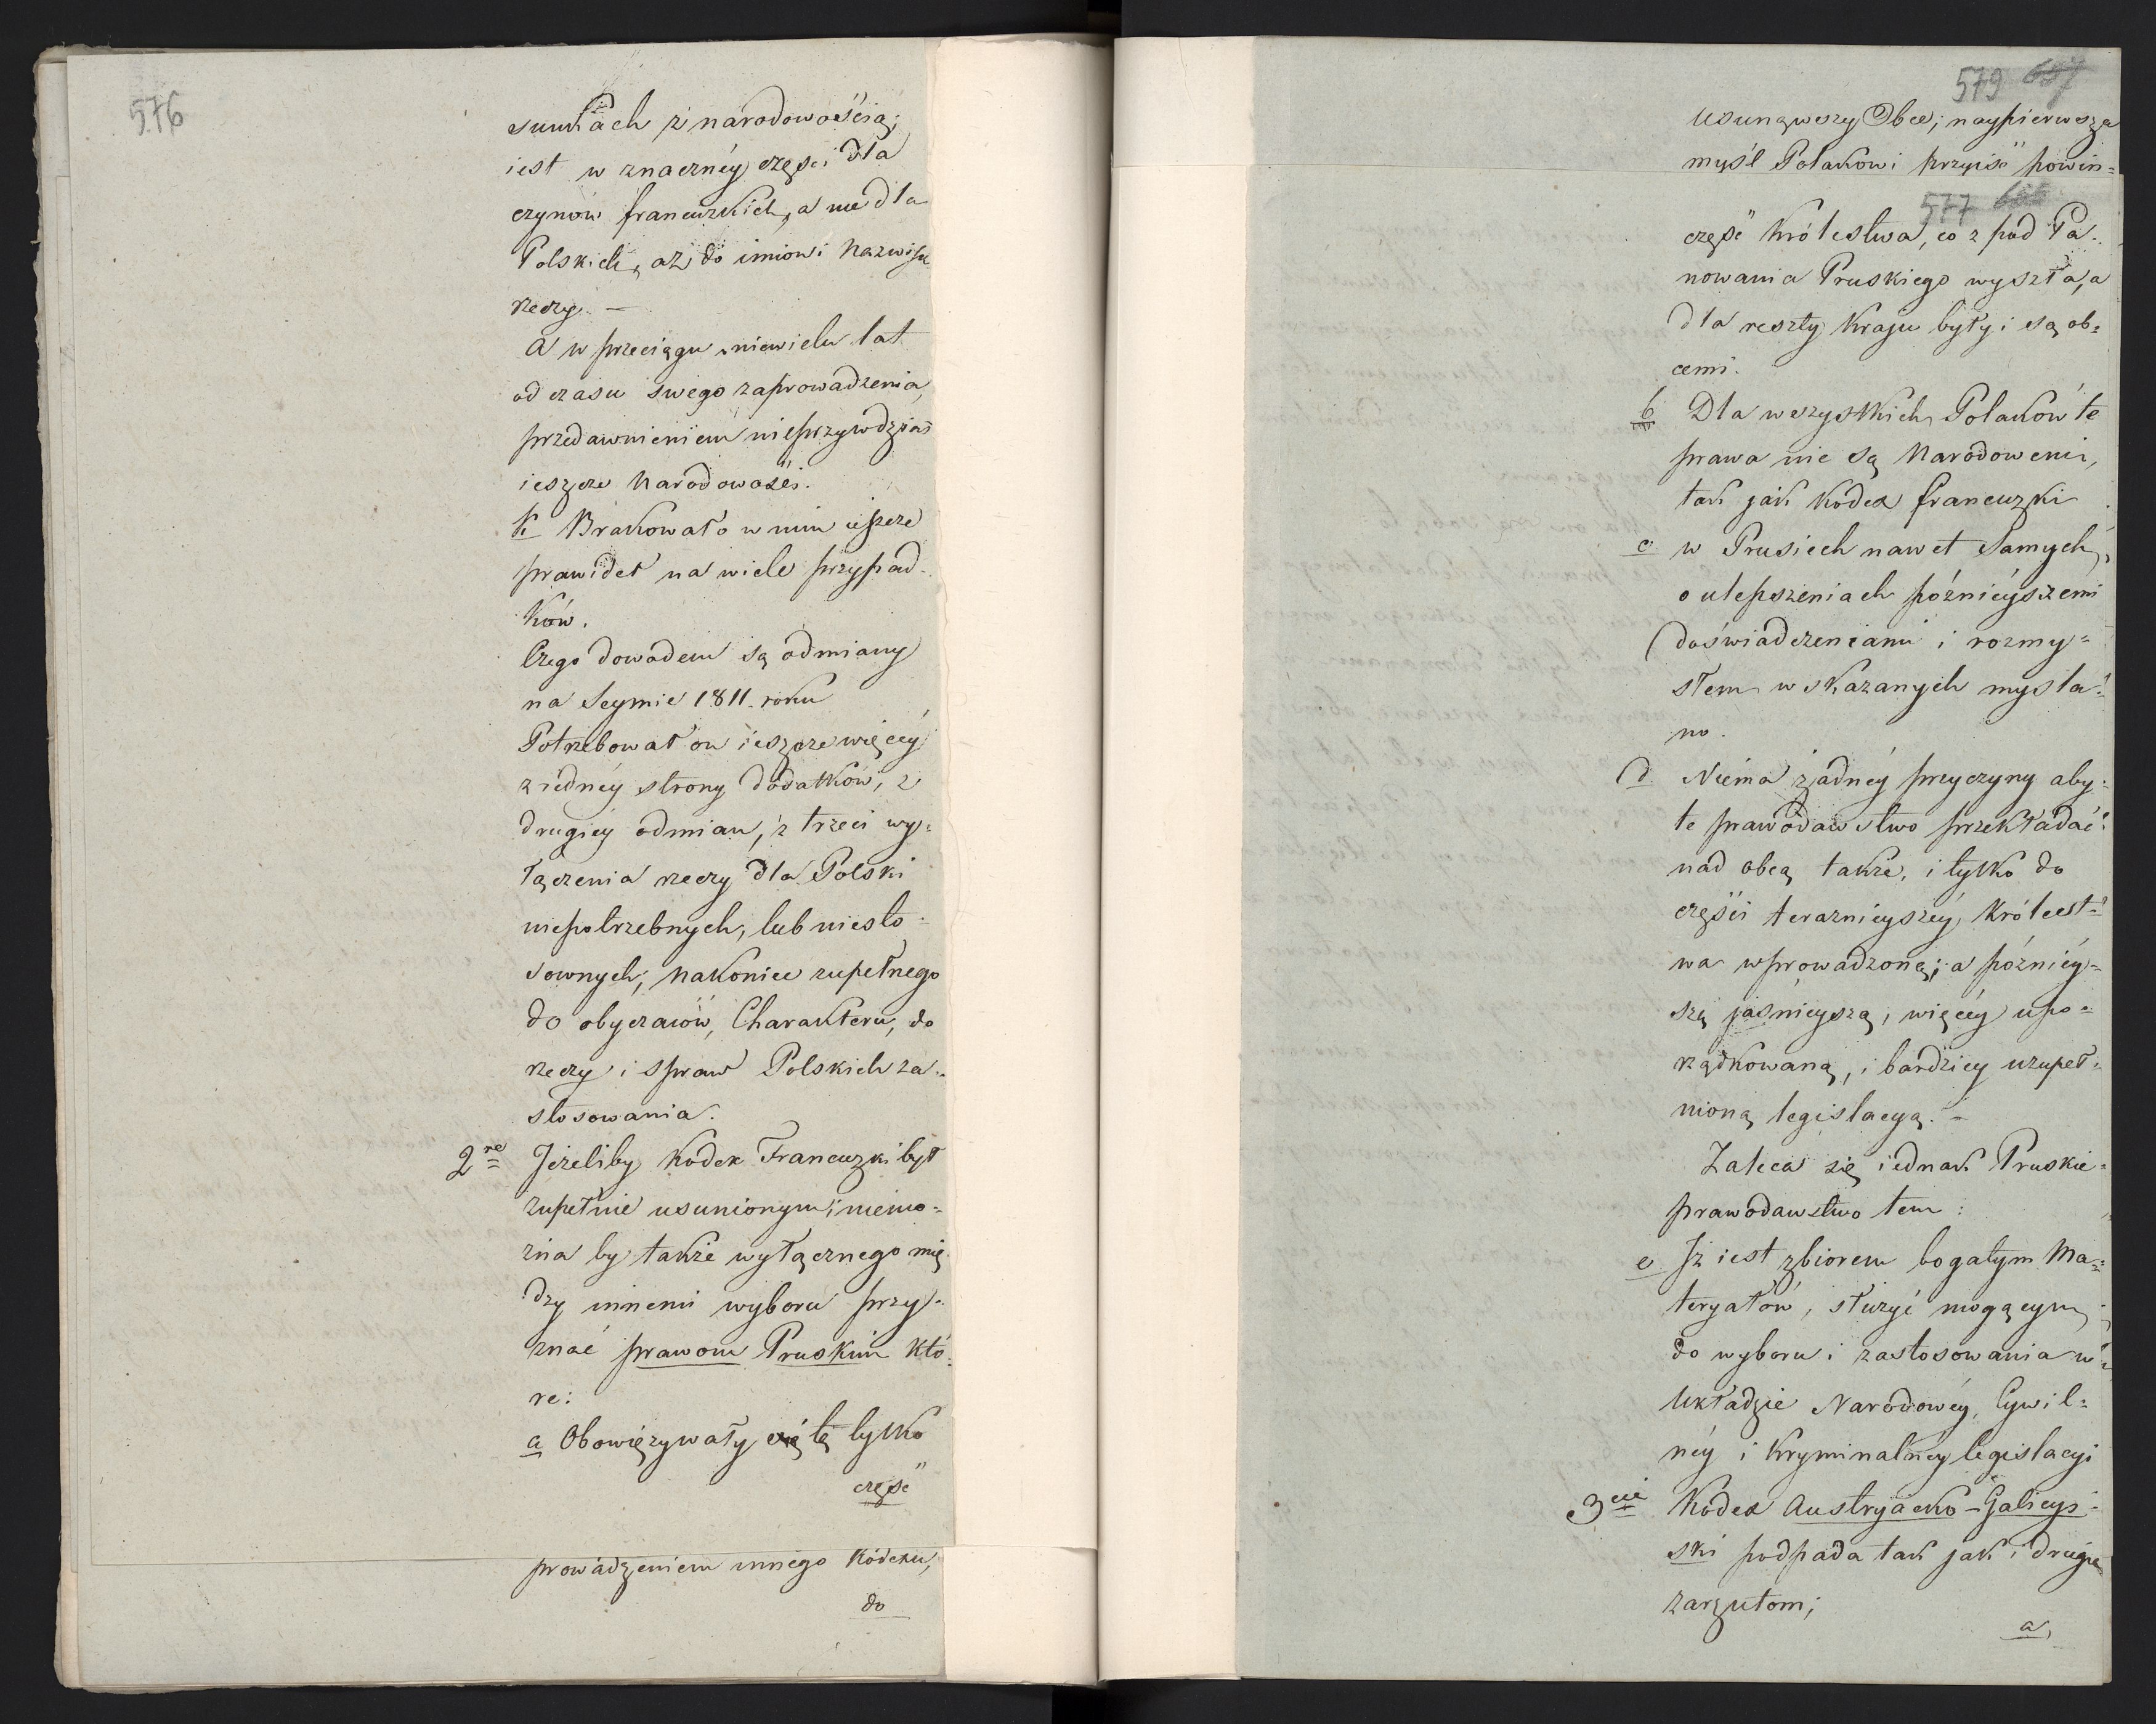 576
sunkach z narodowością;
iest w znaczney części dla
czynów francuzkich, a nie dla
Polskich, aż do imion i nazwisk
rzeczy. —
A w przeciągu niewielu lat
od czasu swego zaprowadzenia,
przedawnieniem nieprzywdział
ieszcze Narodowości.
k Brakowało w nim ieszcze
prawideł na wiele przypad-
ków.
Czego dowodem są odmiany
na Seymie 1811. roku
Potrzebował on ieszcze więcéy
z iednéy strony dodatków, z
drugiey odmian, z trzeci wy=
łączenia rzeczy dla Polski
niepotrzebnych, lub niesto-
sownych; nakoniec zupełnego
do obyczaiów, Charakteru, do
rzeczy i spraw Polskich za-
stosowania.
2re Jeżeliby kodex Francuzki był
zupełnie usunionym; niemo=
żna by także wyłącznego mię
dzy innemi wyboru przy=
znać prawom Pruskim któ=
re:
a Obowięzywały tę tylko
część
prowadzeniem innego Kódexu,
do
579 657
usunąwszy Obce; naypierwszą
myśl Polakowi przyiść powin=
577
część Królestwa, co z pod Pa-
nowania Pruskiego wyszła, a
dla reszty Kraju były i są ob=
cemi.
b Dla wszystkich Polaków te
prawa nie są Narodowemi,
tak jak kodex francuzki
c w Prusiech nawet Samych,
o ulepszeniach późnieyszémi
doświadczeniami i rozmy=
słem wskazanych myśla=
no.
d Niéma żadnéy przyczyny aby
te prawodawstwo przekładać
nad obcą także, i tylko do
części teraznieyszéy Królest=
wa wprowadzoną; a późniéy=
szą jaśnieyszą, więcéy upo=
rządkowaną, i bardziey uzupeł=
nioną legislacyą. —
Zaleca się iednak Pruskie
prawodawstwo tem:
e Iż iest zbiorem bogatym Ma=
teryałów, służyć mogącym
do wyboru i zastosowania w
układzie Narodowéy, Cywil=
néy i Kryminalnéy legislacyi
3cie Kodex Austryacko-Galicys=
ski podpada tak jak i drugie
zarzutom;
a,